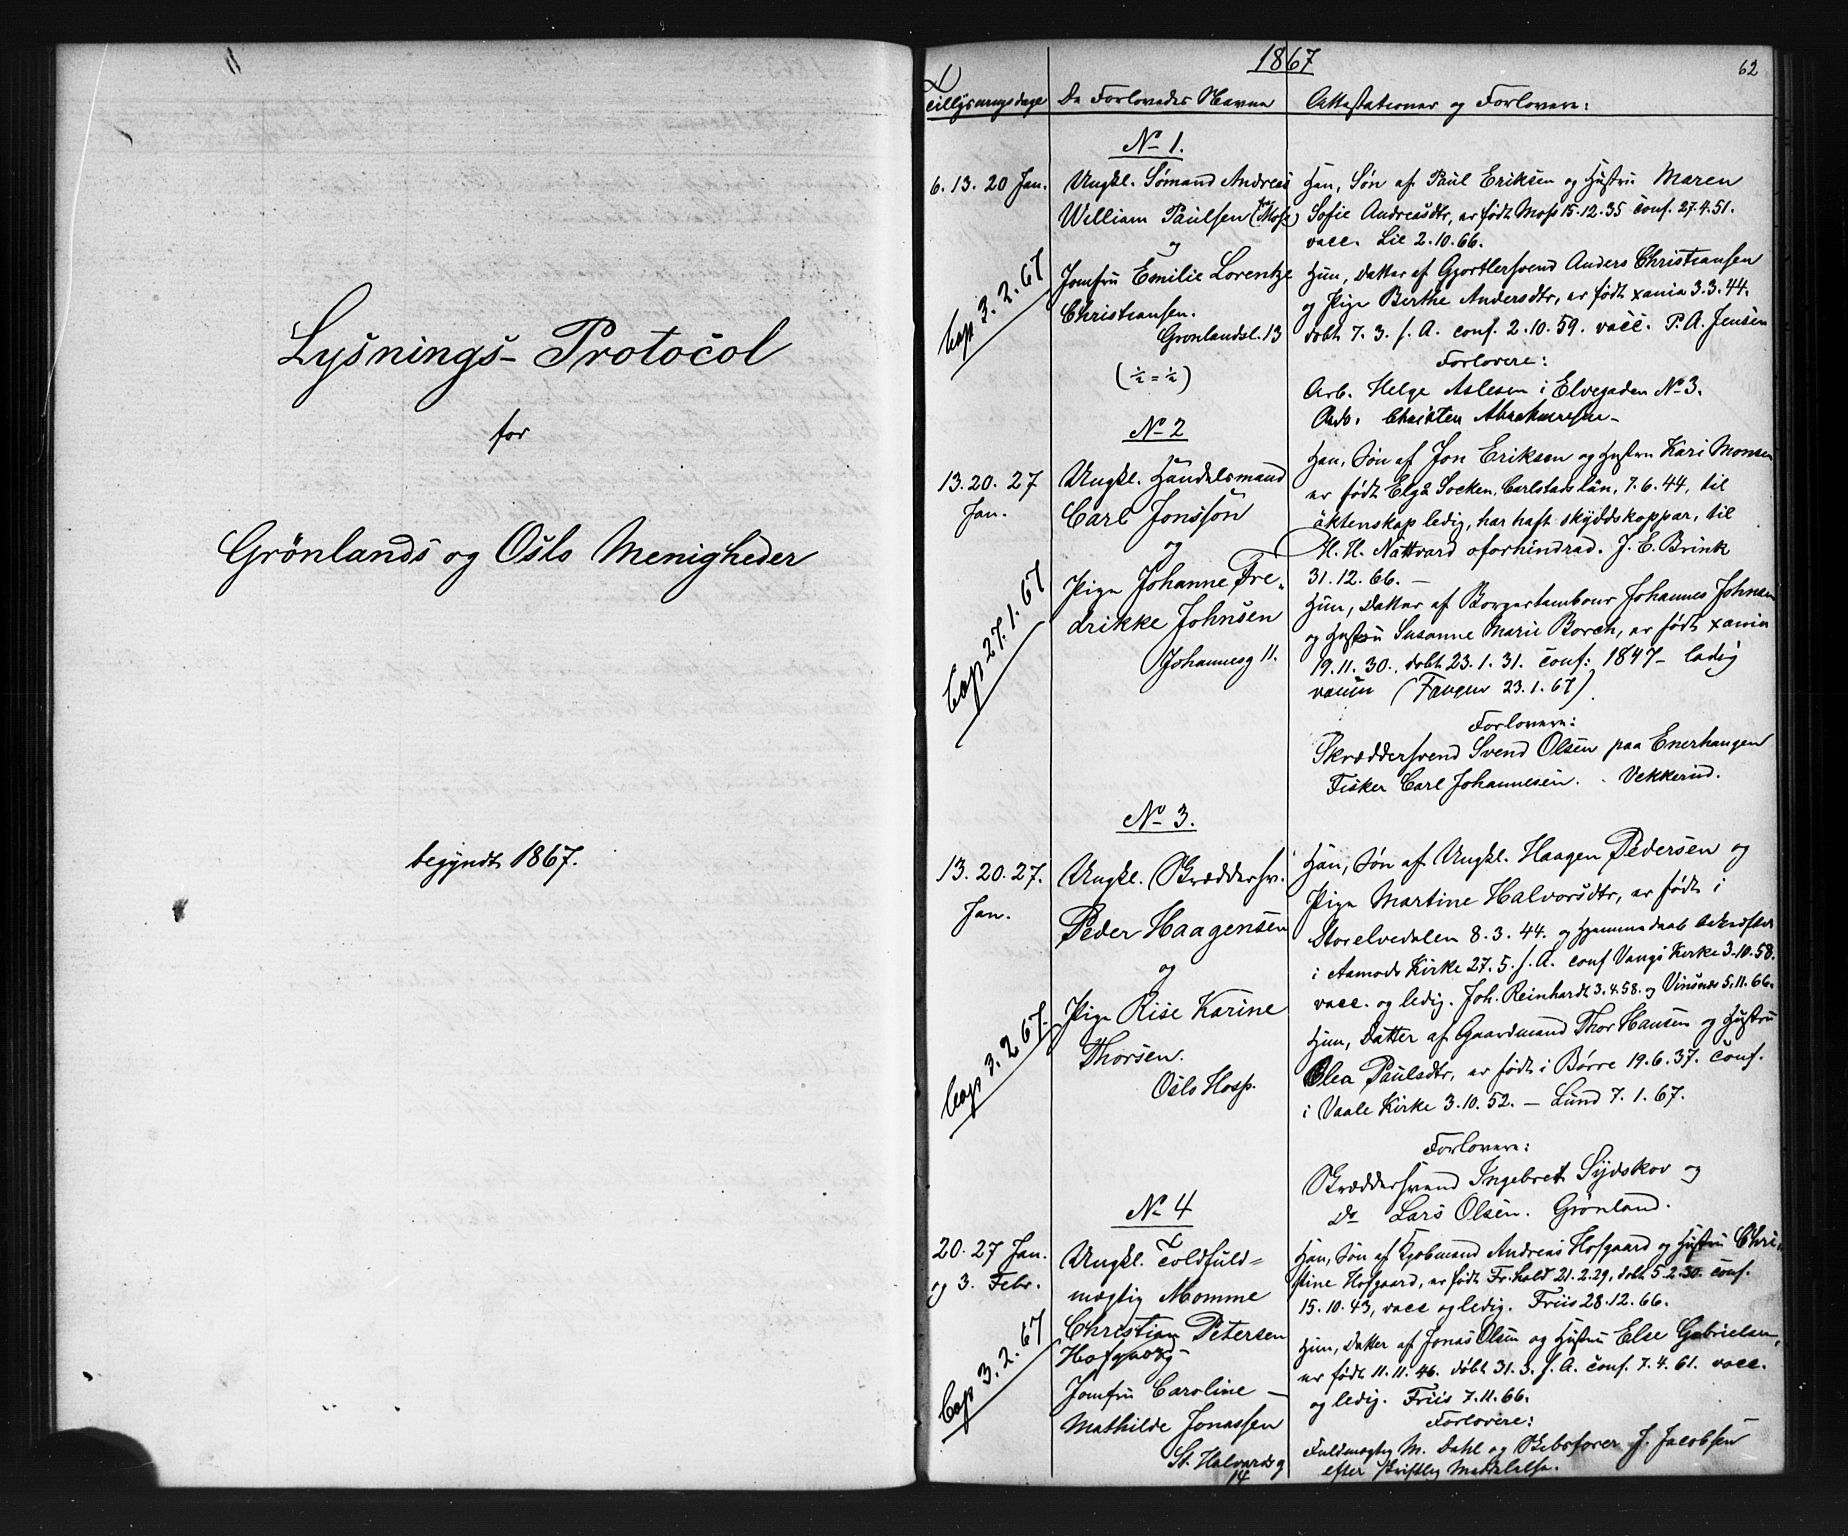 Lysnings-Protocol
for
Grönlands og Oslo Menigheder
begyndt 1867.
1867
62
Tillysningsdage De Forlovedes Navne Attestationer og Forlovere:
No 1.
6. 13. 20 Jan.
Cop 3. 2. 67
Ungkl. Sömand Andreas
William Paulsen (fra Moss)
og
Jomfru Emilie Lorentze
Christiansen.
Gronlandsl. 13
(½ = ½)
Han, Søn af Paul Eriksen og Hustru Maren
Sofie Andreasdtr, er født Moss 15.12.35 conf. 27.4.51.
vacc. Lie 2.10.66.
Hun, Datter af Gjørtlersvend Anders Christiansen
og Pige Berthe Andersdtr, er født xania 3.3.44.
dobt 7.3. s. A. conf. 2.10.59. vacc. P. A. Jensen
Forlovere:
Arb. Helge Aslesen i Elvegaden No 3.
Arb. Christen Abrahamsen
No 2
13. 20. 27
Jan.
Cop 27. 1. 67
Ungkl. Handelsmand
Carl Jonsson
og
Pige Johanne Fre-
drikke Johnsen
Johannesg 11.
Han, Søn af Jon Eriksen og Hustru Kari Monsen
er født Elgå Socken, Carlstads län, 7.6.44, til
äktenskap ledig, har haft skyddskoppar, til
H. H. Nattvard oforhindrad. J. E. Brink
31.12.66. —
Hun, Datter af Borgertambour Johannes Johnsen
og Hustru Susanne Marie Borch, er født xania
19.11.30. dobt 23.1.31. conf: 1847 - ledig
vaccin (Fangen 23.1.67).
Forlovere:
Skræddersvend Svend Olsen paa Enerhaugen
Fisker Carl Johannesen. - Vekkerud.
No 3.
13. 20. 27.
Jan.
Cop 3. 2 67.
Ungkl. Skræddersv.
Peder Haagensen
og
Pige Rise Karine
Thorsen.
Oslo Hosp.
Han, Søn af Ungkl. Haagen Pedersen og
Pige Martine Halvorsdtr, er født i
Storelvedalen 8.3.44. og Hjemmedaab bekræftet
i Aamods Kirke 27.5. s. A. conf Vangs Kirke 3.10.58.
vacc. og ledig. Joh. Reinhardt 3.4.58. og Vinsnes 5.11.66.
Hun, Datter af Gaardmand Thor Hansen og Hustru
Olea Paulsdtr, er født i Børre 19.6.37. conf.
i Vaale Kirke 3.10.52. — Lund 7.1.67.
Forlovere:
Skræddersvend Ingebret Sydskov og
Do Lars Olsen. Grønland.
No 4
20. 27 Jan.
og 3. Febr.
Cop 3. 2. 67
Ungkl. Toldfuld=
mægtig Momme
Christian Petersen
Hofgaard
Jomfru Caroline —
Mathilde Jonassen
St. Halvardsg
14
Han, Søn af Kjøbmand Andreas Hofgaard og Hustru Chri-
stine Hofgaard, er født Fr.hald 21.2.29, dobt 5.2.30. conf.
15.10.43, vacc og ledig. Friis 28.12.66.
Hun, Datter af Jonas Olsen og Hustru Else Gabrielsen,
er født 11.11.46. döbt 31.3. s. A. conf. 7.4.61. vacc.
og ledig. Friis 7.11.66.
Forlovere:
Fuldmægtig M. Dahl og Skibsfører J. Jacobsen
efter skriftlig Meddelelse.